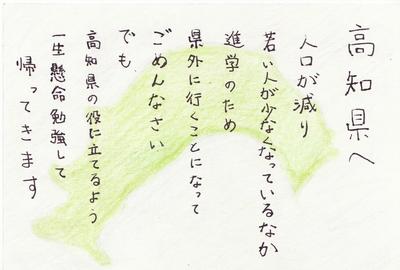 高知県へ
人口が減り
若い人が少なくなっているなか
進学のため
県外に行くことになって
ごめんなさい
でも、
高知県の役に立てるよう
一生懸命勉強して
帰ってきます